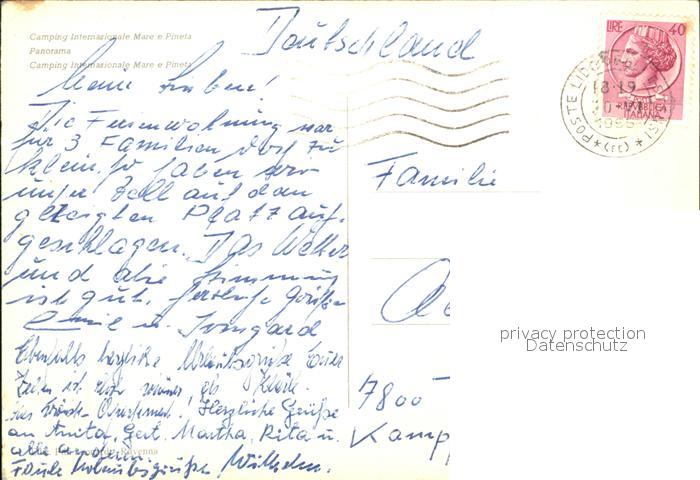 Camping Internazionale Mare e Pineta
Panorama
Camping Internazionale Mare e Pineta
Deutschland
LIRE 40
REPVBBLICA
ITALIANA
POSTE LIDO
18-19
Meine Lieben!
Die Ferienwohnung war
für 3 Familien doch zu
klein. So haben wir
unser Zelt auf dem
gezeigten Platz auf-
geschlagen. Das Wetter
und die Stimmung
ist gut. Herzliche Grüße
Emil u. Irmgard
Ebenfalls herzliche Urlaubsgrüße
Herzliche Grüße
an Anita, Gert, Martha, Rita u.
alle anderen.
Urlaubsgrüße Wilhelm.
Ravenna
Familie
7800
Kamp
privacy protection
Datenschutz